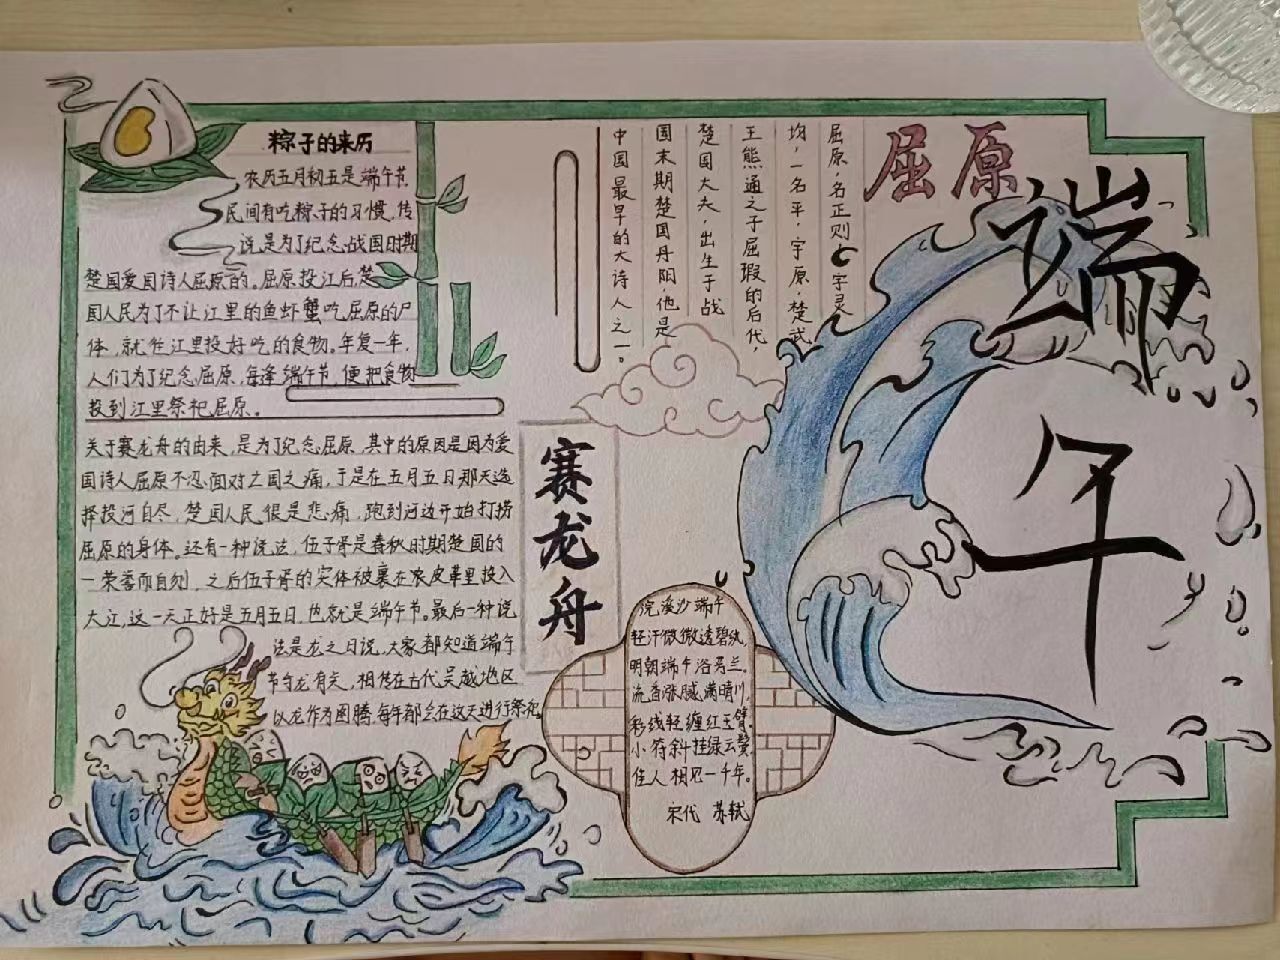 粽子的来历
农历五月初五是端午节,
民间有吃粽子的习惯,传
说是为了纪念战国时期
楚国爱国诗人屈原的。屈原投江后,楚
国人民为了不让江里的鱼虾蟹吃屈原的尸
体,就往江里投好吃的食物。年复一年,
人们为了纪念屈原,每逢端午节,便把食物
投到江里祭祀屈原。
关于赛龙舟的由来,是为了纪念屈原,其中的原因是因为爱
国诗人屈原不忍面对亡国之痛,于是在五月五日那天选
择投河自尽,楚国人民很是悲痛,跑到河边开始打捞
屈原的身体。还有一种说法,伍子胥是春秋时期楚国的
一荣誉而自刎,之后伍子胥的实体被裹在农皮革里投入
大江,这一天正好是五月五日,也就是端午节。最后一种说
法是龙之日说,大家都知道端午
节与龙有关,相传在古代吴越地区
以龙作为图腾,每年都会在这天进行祭祀。
赛龙舟
屈原
屈原,名正则,字灵
均,一名平,字原,楚武
王熊通之子屈瑕的后代,
楚国大夫,出生于战
国末期楚国丹阳,他是
中国最早的大诗人之一。
端午
浣溪沙 端午
轻汗微微透碧纨,
明朝端午浴芳兰。
流香涨腻满晴川。
彩线轻缠红玉臂,
小符斜挂绿云鬟。
佳人相见一千年。
宋代 苏轼